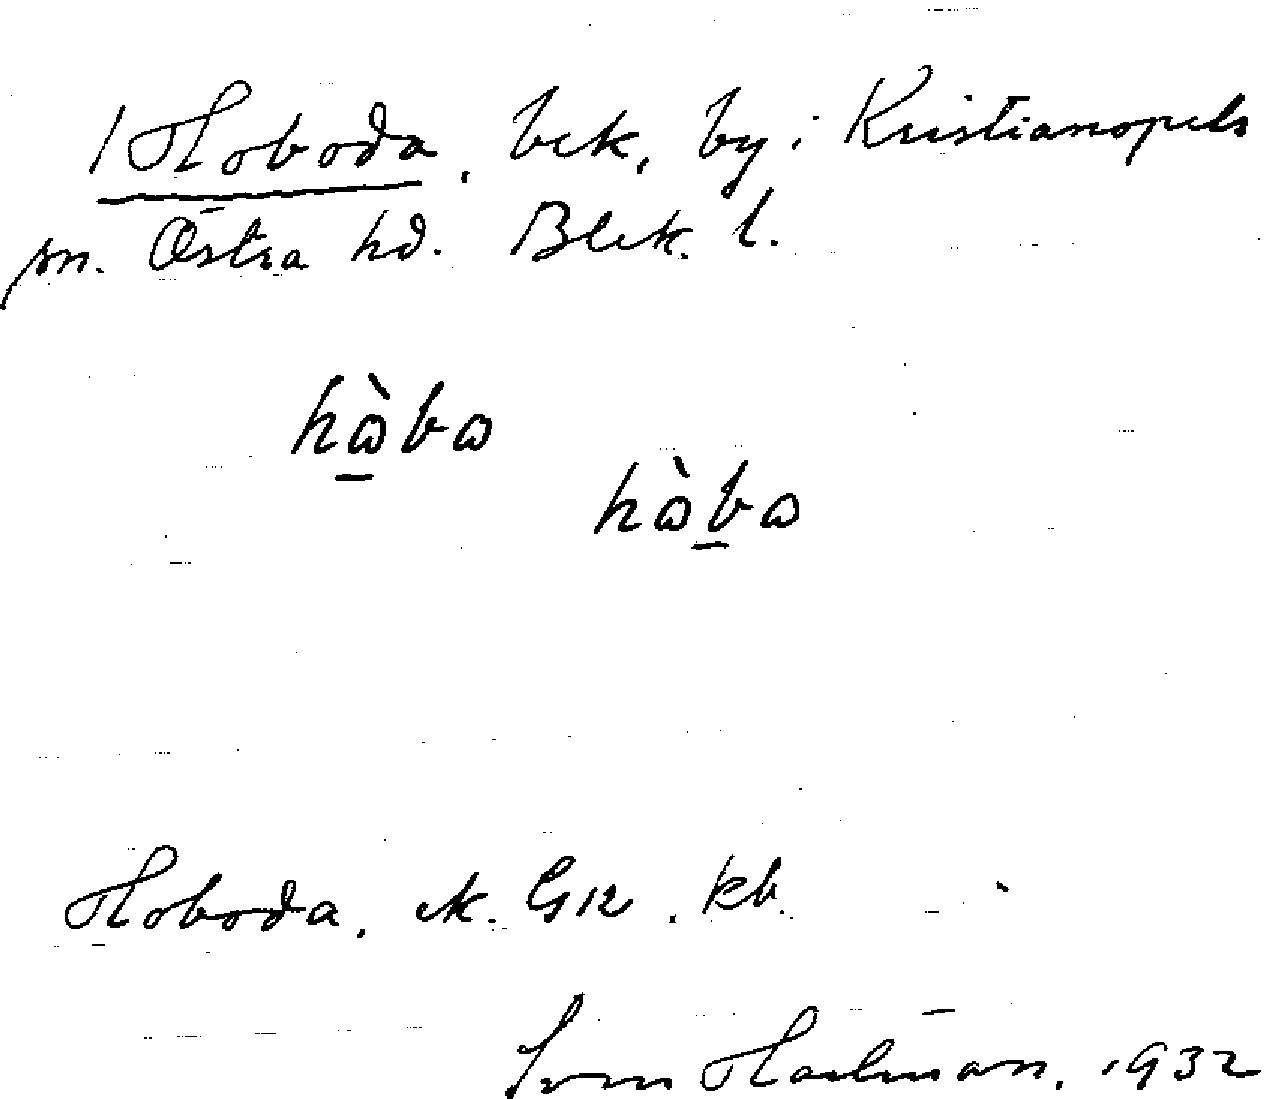 Hoboda, bek, by i Kristianopels
sn. Östra hd. Blek. l.
hὼ̱bω
hὼḇω
Hoboda, ek. GK. kb.
Sven Hallman. 1932